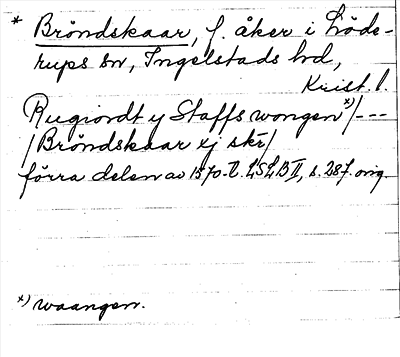 * Bröndskaar, f. åker i Löde-
rups sn, Ingelstads hd,
Krist. l.
Rugiordt y Staffs wongen x)/---
/Bröndskaar xj skr/
förra delen av 1570-t. LSLB II, s. 287. orig.
x) waangen.